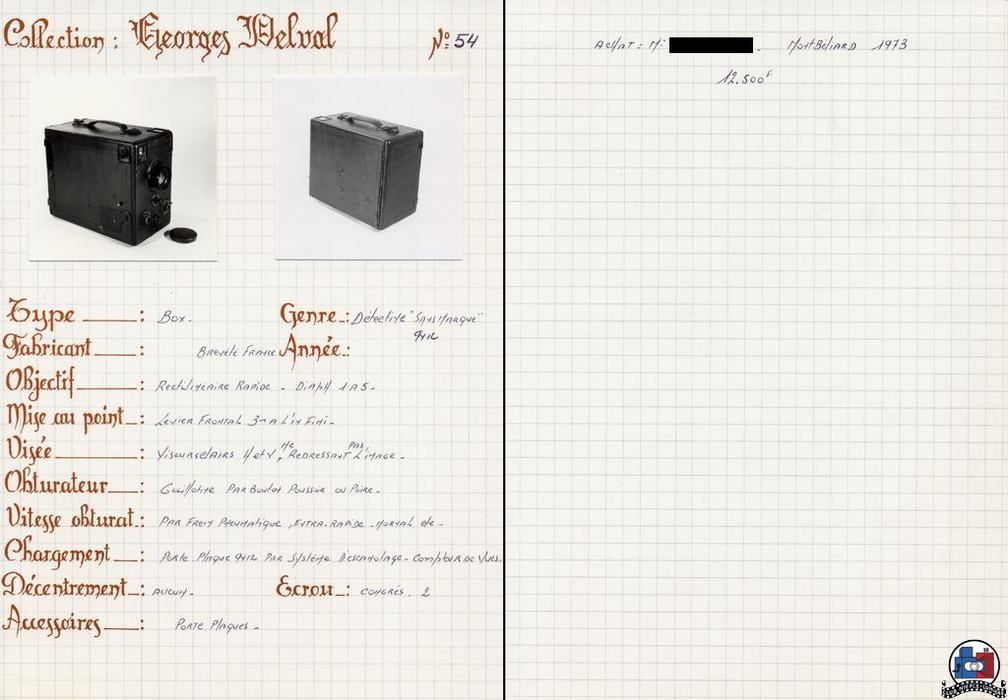 Collection : Georges Delval
N° 54
Type : Box.
Genre : Détective "Sans Marque" 9x12
Fabricant : Brevété France Année :
Objectif : Rectilinéaire Rapide - Diaph 1 à 5 -
Mise au point : Levier Frontal 3m à L'infini -
Visée : Viseurs clairs H et V, ne Redressant pas L'image -
Obturateur : Guillotine Par Bouton Poussoir ou Poire -
Vitesse obturat. : Par Frein Pneumatique, Extra-Rapide - Normal etc -
Chargement : Porte Plaque 9x12 Par Système D'escamotage - Compteur de Vues.
Décentrement : Aucun -
Ecrou : Congrès. 2
Accessoires : Porte Plaques -
Achat : M: . Montbéliard 1973
12.500F